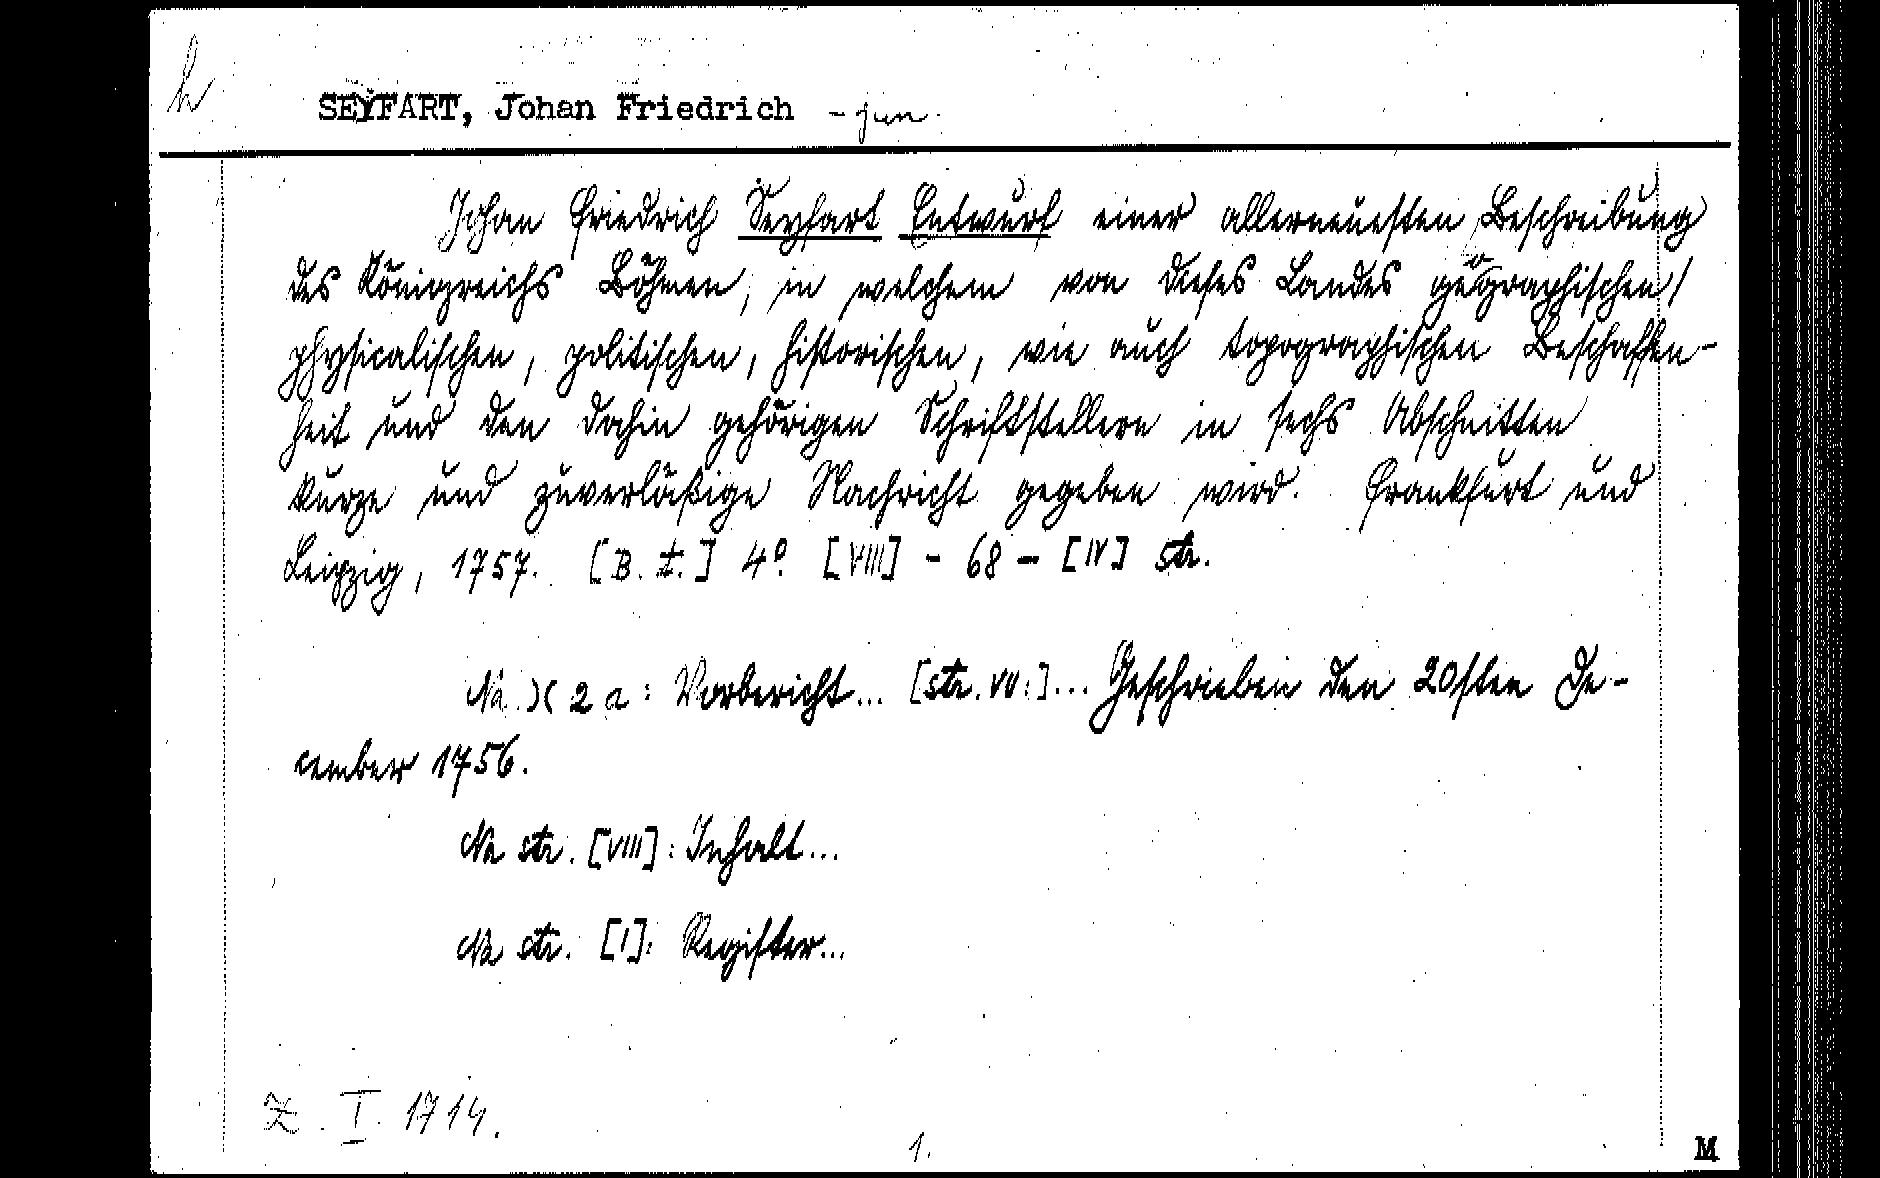 h
SEYFART, Johan Friedrich - jun.
Johan Friedrich Seyfart Entwurf einer allerneuesten Beschreibung
des Königreichs Böhmen, in welchem von dieses Landes geographischen/
physicalischen, politischen, historischen, wie auch topographischen Beschaffen-
heit und den dahin gehörigen Schriftstellern in sechs Abschnitten
kurze und zuverläßige Nachricht gegeben wird. Frankfurt und
Leipzig, 1757. [B. t.] 4° [VIII] - 68 - [IV] str.
Na )( 2 a: Vorbericht... [str. VII:]... Geschrieben den 20sten De-
cember 1756.
Na str. [VIII]: Inhalt...
Na str. [I]: Register...
Z. I. 1714.
1.
M